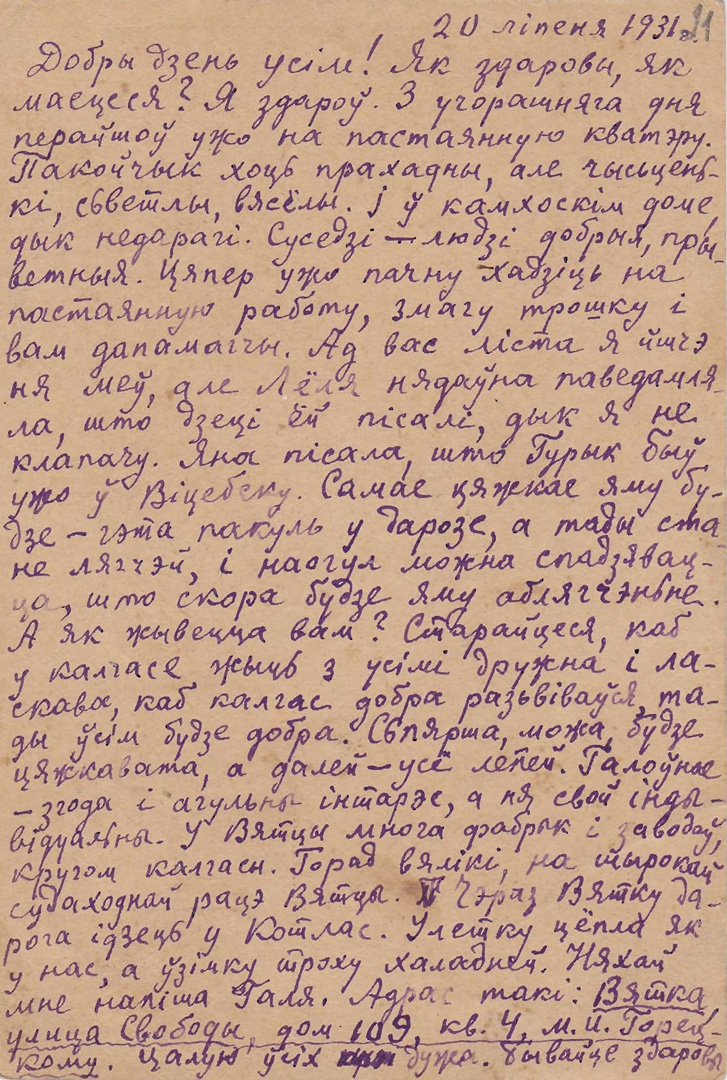 20 ліпеня 1931 г. 21
Добры дзень усім! Як здаровы, як
маецеся? Я здароў. З учорашняга дня
перайшоў ужо на пастаянную кватэру.
Пакойчык хоць прахадны, але чысьцень-
кі, сьветлы, вясёлы. І ў камхоскім доме,
дык недарагі. Суседзі — людзі добрыя, пры-
ветныя. Цяпер ужо пачну хадзіць на
пастаянную работу, змагу трошку і
вам дапамагчы. Ад вас ліста я йшчэ
ня меў, але Лёля нядаўна паведамля-
ла, што дзеці ёй пісалі, дык я не
клапачу. Яна пісала, што Гурык быў
ужо ў Віцебску. Самае цяжкае яму бу-
дзе — гэта пакуль у дарозе, а тады ста-
не лягчэй, і наогул можна спадзявац-
ца, што скора будзе яму аблягчэньне.
А як жывецца вам? Старайцеся, каб
у калгасе жыць з усімі дружна і ла-
скава, каб калгас добра разьвіваўся, та-
ды ўсім будзе добра. Сьпярша, можа, будзе
цяжкавата, а далей — усё лепей. Галоўнае
— згода і агульны інтарэс, а ня свой інды-
відуальны. У Вятцы многа фабрык і заводаў,
кругом калгасы. Горад вялікі, на шырокай
судаходнай рацэ Вятцы. Чэраз Вятку да-
рога ідзець у Котлас. Улетку цёпла як
у нас, а ўзімку троху халадней. Няхай
мне напіша Галя. Адрас такі: Вятка,
улица Свободы, дом 109, кв. 4, М. И. Горец-
кому. Цалую ўсіх дужа. Бывайце здаровы